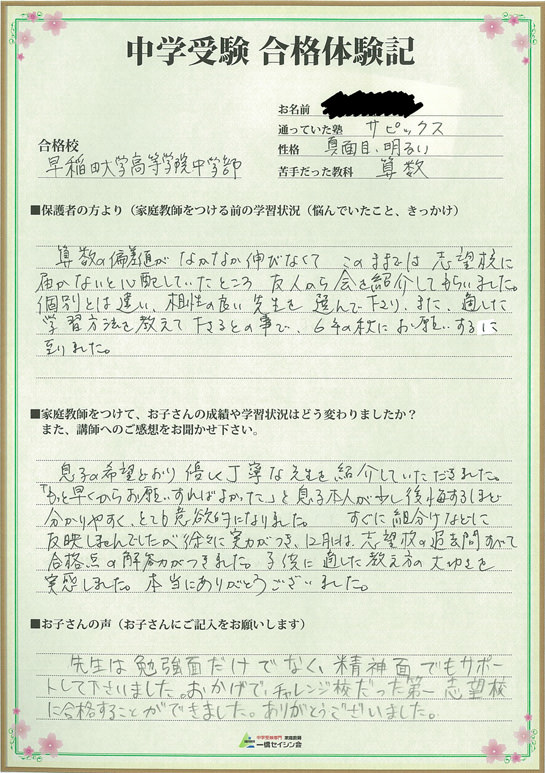 中学受験 合格体験記
お名前
通っていた塾 サピックス
性格 真面目、明るい
苦手だった教科 算数
合格校
早稲田大学高等学院中学部
■保護者の方より（家庭教師をつける前の学習状況（悩んでいたこと、きっかけ）
算数の偏差値が なかなか伸びなくて このままでは 志望校に
届かないと心配していたところ 友人から会を紹介してもらいました。
個別とは違い、相性の良い先生を選んで下さり、また、適した
学習方法を教えて下さるとの事で、6年の秋にお願いするに
至りました。
■家庭教師をつけて、お子さんの成績や学習状況はどう変わりましたか？
また、講師へのご感想をお聞かせ下さい。
息子の希望どおり優しく丁寧な先生を紹介していただきました。
「もっと早くからお願いすればよかった」と息子本人が少し後悔するほど
分かりやすく、とても意欲的になりました。 すぐに組分けなどに
反映しませんでしたが徐々に実力がつき、12月には、志望校の過去問すべて
合格点の解答力がつきました。子供に適した教え方の大切さを
実感しました。本当にありがとうございました。
■お子さんの声（お子さんにご記入をお願いします）
先生は勉強面だけでなく、精神面でもサポー
トして下さいました。おかげで、チャレンジ校だった第一志望校
に合格することができました。ありがとうございました。
中学受験専門 家庭教師
一橋セイシン会